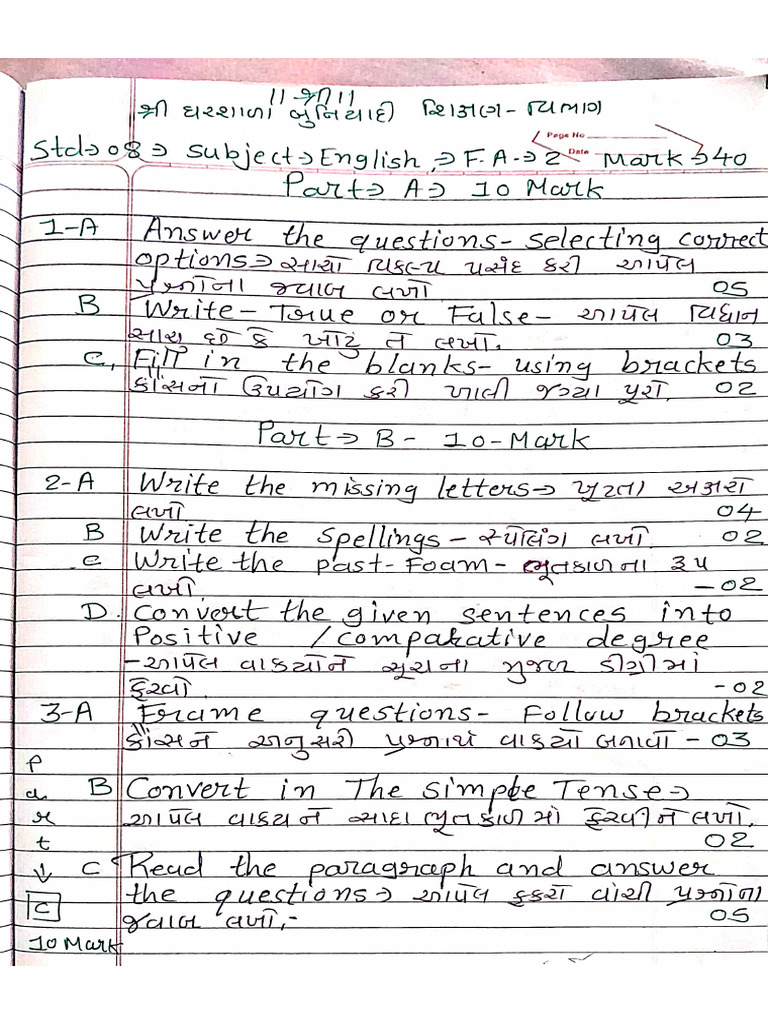 ॥ श्री ॥
શ્રી ઘરશાળા બુનિયાદી શિક્ષણ - વિભાગ
Page No
Date
Std→08→ Subject→English,→F.A-→2 Mark→40
Part→ A→ 10 Mark
1-A Answer the questions- selecting correct
options→ સાચો વિકલ્પ પસંદ કરી આપેલ
પ્રશ્નોના જવાબ લખો. 05
B Write- True or False- આપેલ વિધાન
સાચું છે કે ખોટું તે લખો. 03
C, Fill in the blanks- using brackets
કૌંસનો ઉપયોગ કરી ખાલી જગ્યા પૂરો. 02
Part→ B- 10-Mark
2-A Write the missing letters→ ખૂટતા અક્ષરો
લખો 04
B Write the spellings- સ્પેલિંગ લખો. 02
C Write the past-Foam- ભૂતકાળના રૂપ
લખો. -02
D. Convert the given sentences into
Positive /comparative degree
-આપેલ વાક્યોને સૂચના મુજબ ડીગ્રીમાં
ફેરવો. -02
3-A Frame questions- Follow brackets
કૌંસને અનુસરી પ્રશ્નાર્થ વાક્યો બનાવો - 03
B Convert in The simple Tense→
આપેલ વાક્યને સાદા ભૂતકાળમાં ફેરવીને લખો.
02
C Read the paragraph and answer
the questions→ આપેલ ફકરો વાંચી પ્રશ્નોના
જવાબ લખો,- 05
Part
↓
C
10 Mark